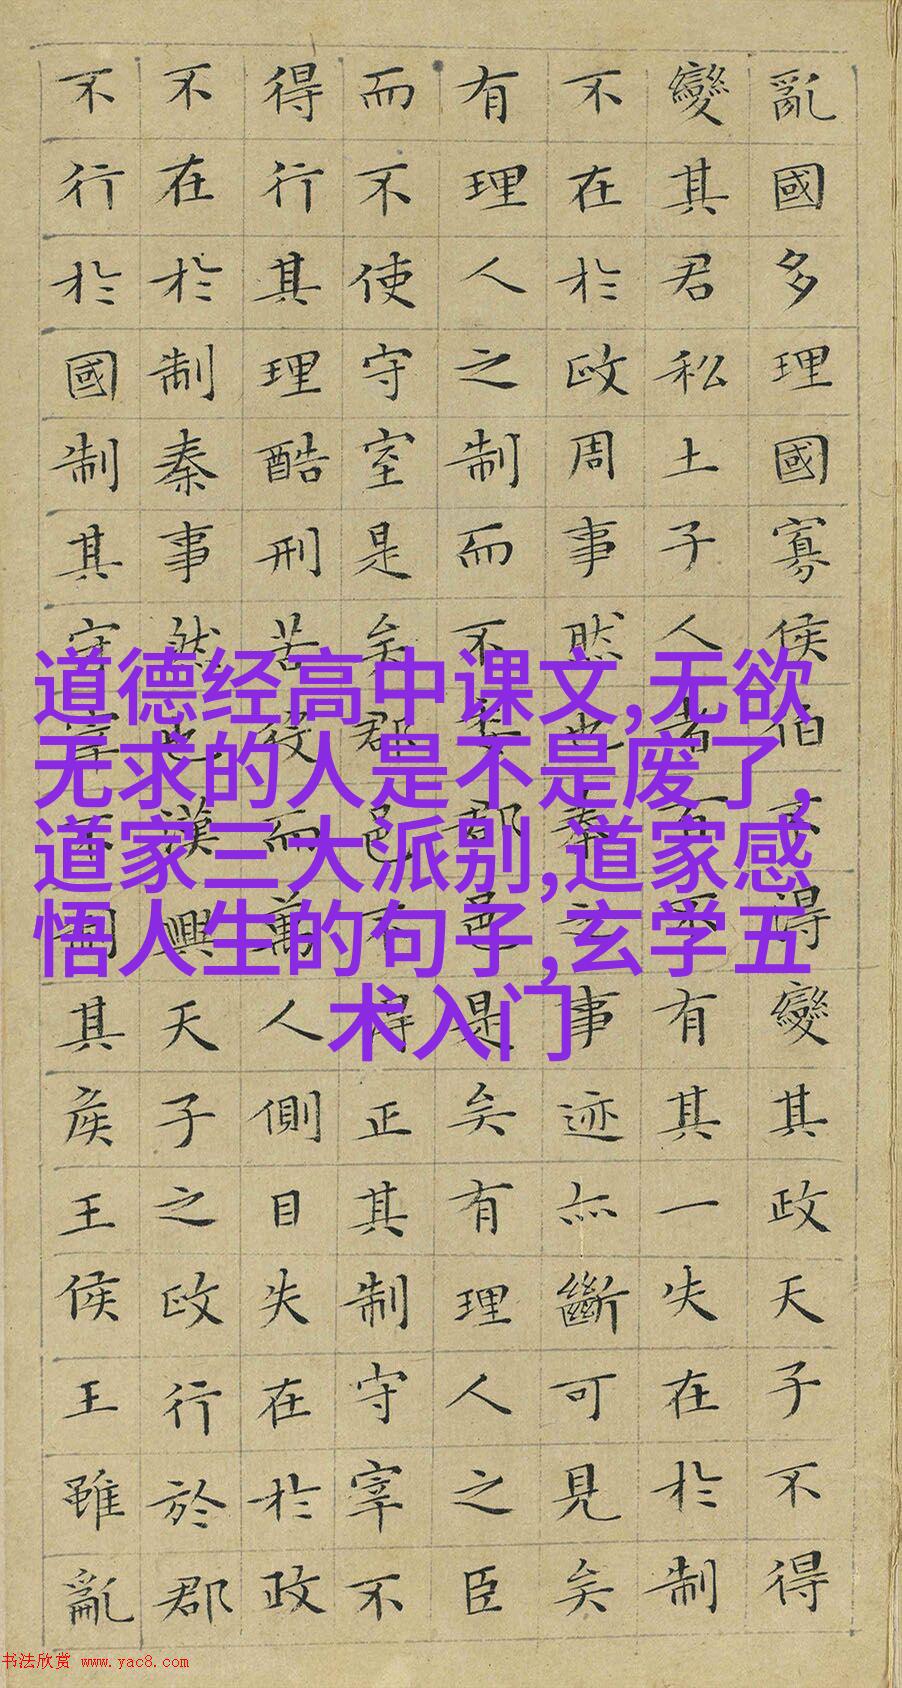 亂國多理國寡侯伯不得變其政天子不得
變其君私土子人者百不有其一失在於制
不在於政周事然也秦之事迹亦斷可見矣
有理人之制而不委郡邑是矣有理人之臣
而不使守宰是矣郡邑不得正其制守宰不
得行其理酷刑苦役而萬人側目失在於政
不在於制秦事然也漢興天子之政行於郡
不行於國制其守宰不制其侯王侯王雖亂
道德经高中课文,无欲
无求的人是不是废了,
道家三大派别,道家感
悟人生的句子,玄学五
术入门
书法欣赏 www.yac8.com